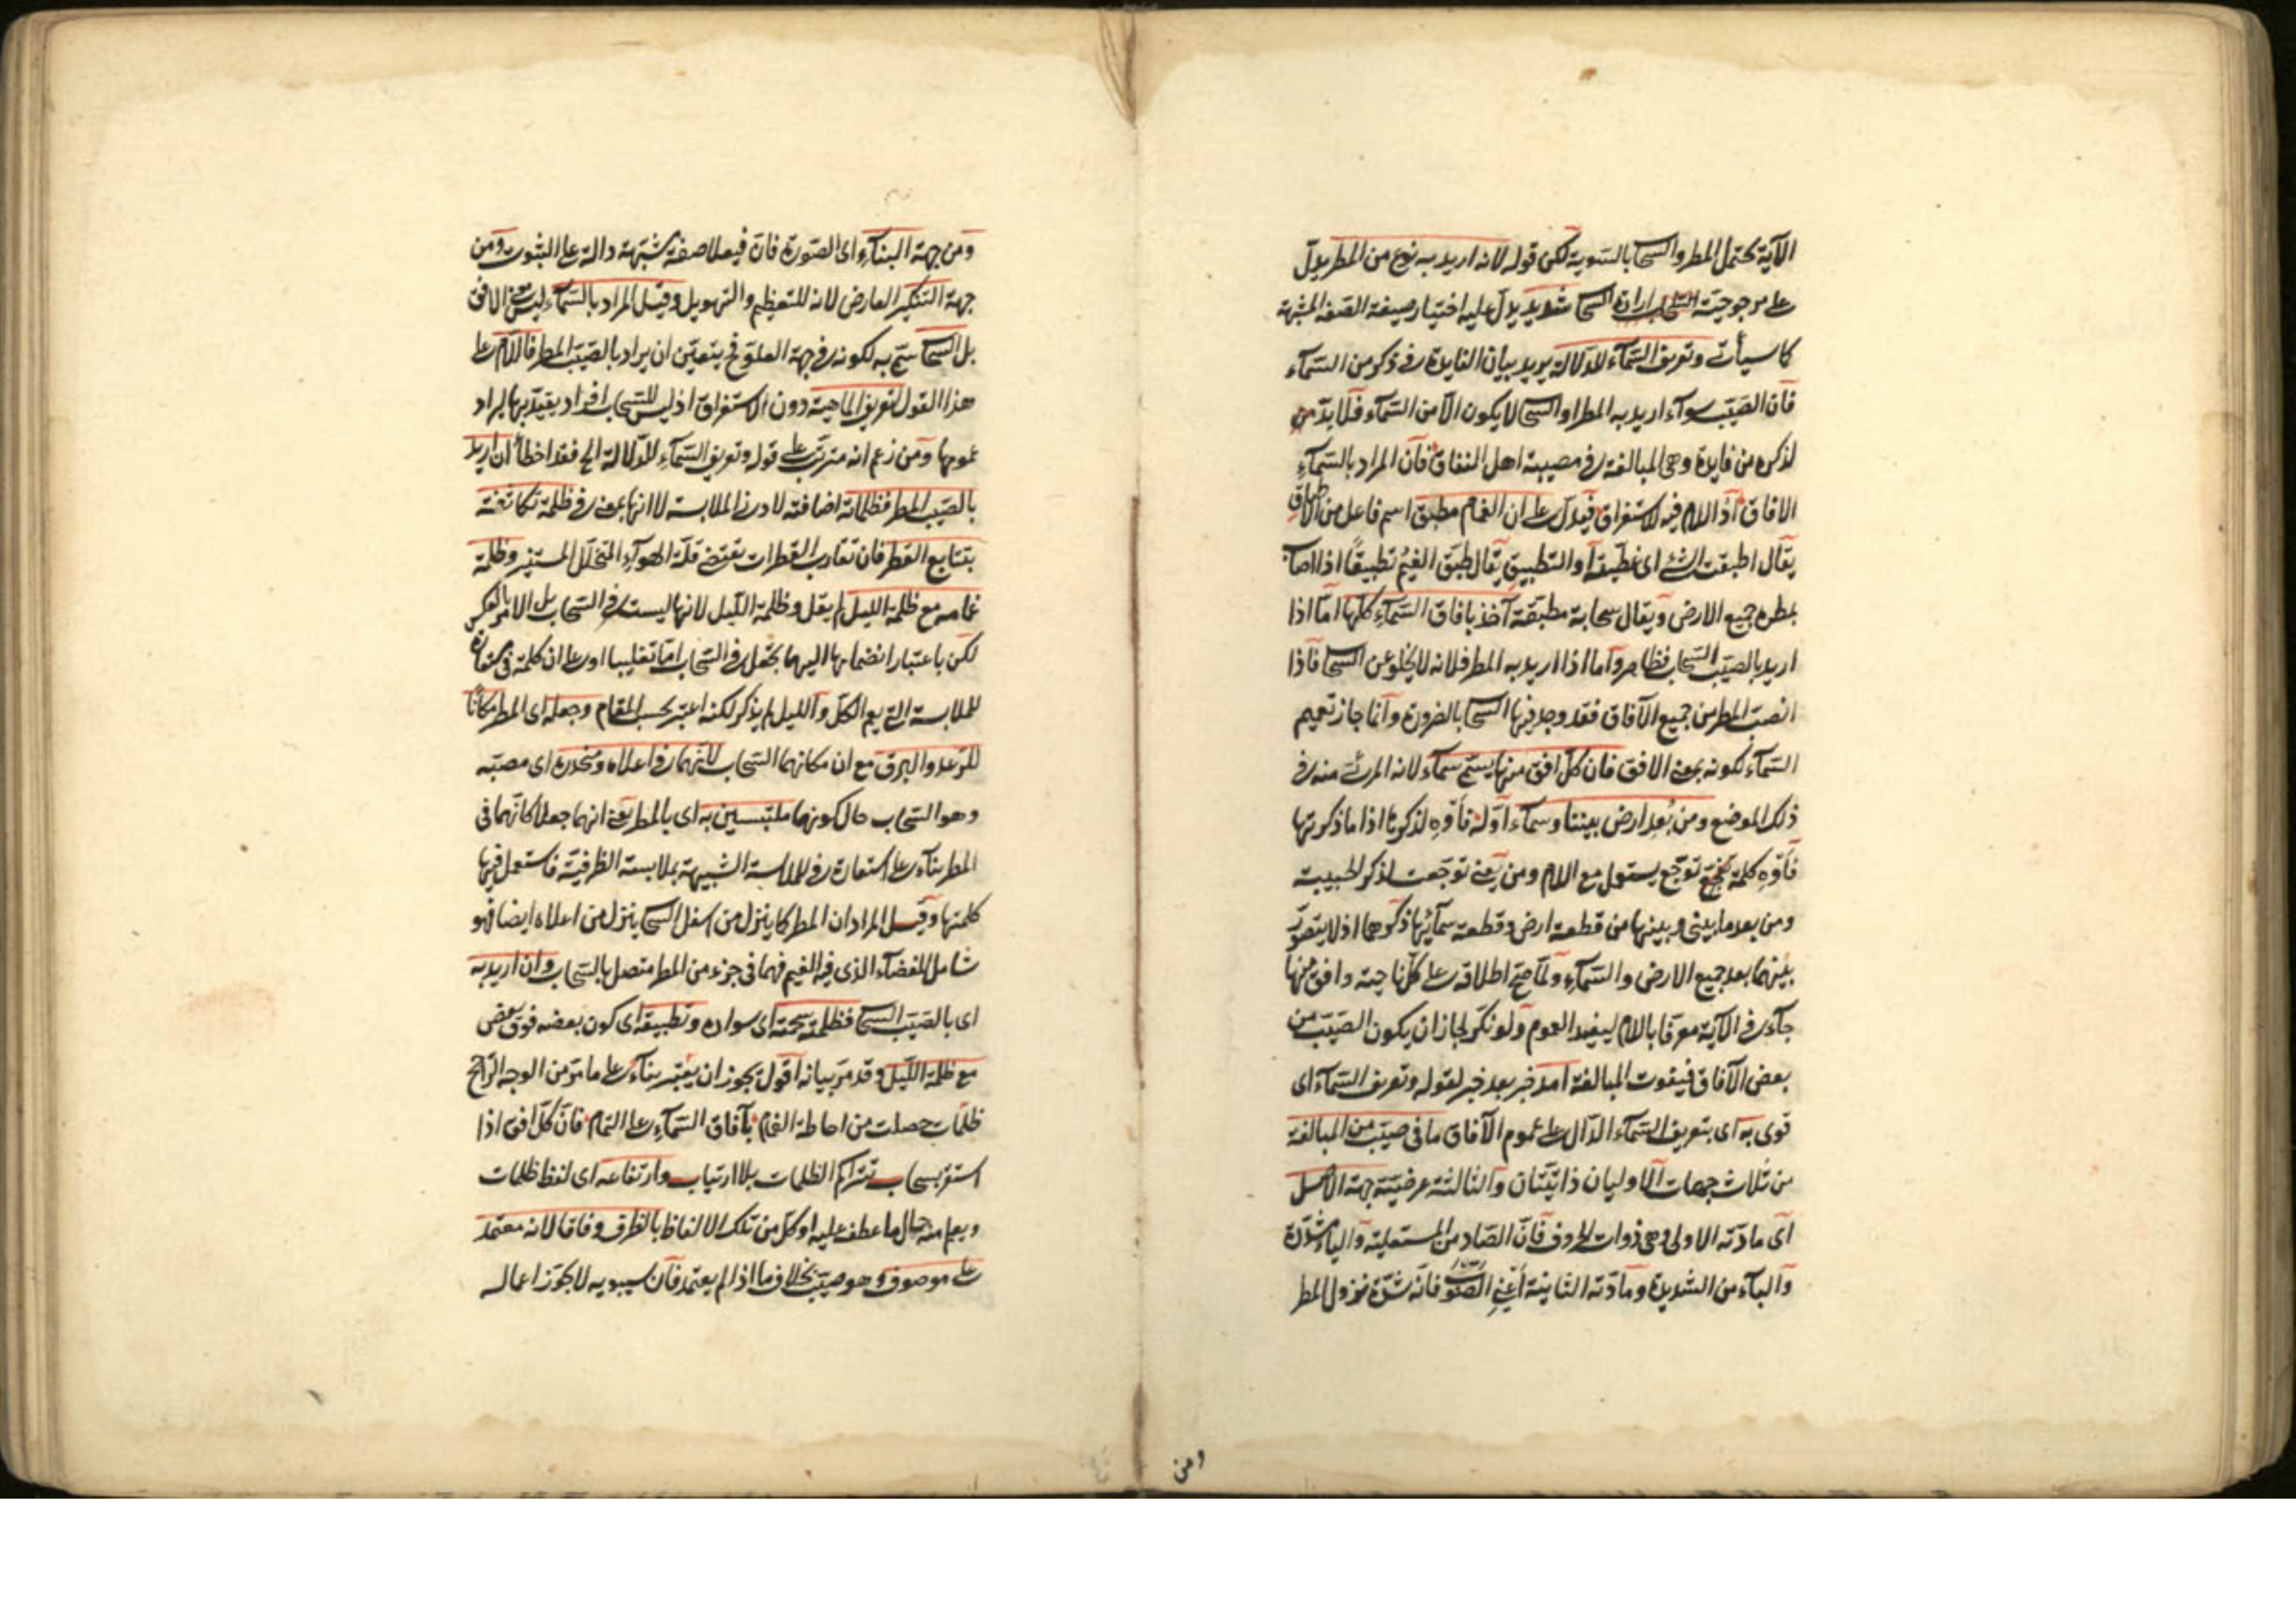 الآية يحتمل المطر والسحاب بالسوية لكن قوله لانه اريد به نوع من المطر يدل
على مرجوحية السحاب ارادة السحاب شديد يدل عليه اختيار صيغة الصفة المشبهة
كما سيأتى وتعريف السمآء للدلالة يريد بيان الفايدة فى ذكر من السمآء
فان الصيّب سوآء اريد به المطر او السحاب لا يكون الا من السمآء فلا بدّ من
لذكره من فايدة وهى المبالغة فى مصيبة اهل النفاق فان المراد بالسمآء
الافاق اذ اللام فيه للاستغراق فيدل على ان الغمام مطبق اسم فاعل من الاطباق
يقال اطبقت الشئ اى غطيته او التطبيق يقال طبّق الغيم تطبيقا اذا اصاب
بمطره جميع الارض ويقال سحابة مطبقة آخذ بافاق السمآء كلها امّا اذا
اريد بالصيّب السحاب فظاهر وامّا اذا اريد به المطر فلانه لا يخلو عن السحاب فاذا
انصبّ المطر من جميع الآفاق فقد وجد فيها السحاب بالضرورة وانّما جاز تعميم
السمآء لكونه بمعنى الافق فان كلّ افق منها يسمّى سمآء لانه المرئى منه فى
ذلك الموضع ومن بُعد ارض بيننا وسمآء اوّله فأوّهِ لذكرها اذا ما ذكرتها
فأوّهِ كلمة توجّع يستعمل مع اللام ومن يعنى توجعت لذكر الحبيبة
ومن بعد ما بينى وبينها من قطعة ارض وقطعة سمآء ذكرهما اذ لا يتصوّر
بينهما بعد جميع الارض والسمآء ولمّا صحّ اطلاقه على كلّ ناحية وافق منها
جآء فى الآية معرّفا باللام ليفيد العموم ولو نكّر لجاز ان يكون الصيّب من
بعض الآفاق فيفوت المبالغة امد خبر بعد خبر لقوله وتعريف السمآء اى
قوى به اى بتعريف السمآء الدّال على عموم الآفاق ما فى صيّب من المبالغة
من ثلاث جهات الاوليان ذاتيّتان والثالثة عرضيّة جهة الاصل
اى مادّته الاولى وهى ذوات الحروف فانّ الصّاد من المستعلية واليآء مشدّدة
والبآء من الشديدة ومادّته الثانية اَعنِى الصّوب فانّه شدّة نزول المطر
ومن
ومن جهة البنآء اى الصّورة فانّ فيعلا صفة مشبّهة دالة على الثبوت ومن
جهة التنكير العارض لانه للتعظيم والتهويل وقيل المراد بالسمآء ليس الافق
بل السحاب سمّى به لكونه فى جهة العلوّ فح يتعيّن ان يراد بالصيّب المطر فاللام على
هذا القول لتعريف الماهية دون الاستغراق اذ ليس للسحاب افراد يقيّد بها ليراد
عمومها ومن زعم انه مترتّب على قوله وتعريف السمآء للدلالة الخ فقد اخطأ ان اريد
بالصيّب المطر فظلماته اضافته لادنى الملابسة لا انها بمعنى فى ظلمة تكاثفه
بتتابع القطر فان تقارب القطرات يقتضى قلّة الهوآء المتخلّل المستنير وظلمة
غمامه مع ظلمة الليل لم يقل وظلمة الليل لانها ليست فى السحاب بل الامر بالعكس
لكن باعتبار انضمامها اليهما يجعل فى السحاب امّا تغليبا او على ان كلمة فى مستعارة
للملابسة التى يعم الكلّ والليل لم يذكر لكنه اعتبر بحسب المقام وجعله اى المطر مكانًا
للرّعد والبرق مع ان مكانهما السحاب لانّهما فى اعلاه ومنحدره اى مصبّه
وهو السحاب حال كونهما ملتبسين به اى بالمطر يعنى انهما جعلا كانّهما فى
المطر بنآء على استعارة فى للملابسة الشبيهة بملابسة الظرفيّة فاستعمل فيها
كلمتها وقيل المراد ان المطر كما ينزل من اسفل السحاب ينزل من اعلاه ايضا فهو
شامل للفضآء الذى فيه الغيم فهما فى جزء من المطر متصل بالسحاب وان اريد به
اى بالصيّب السحاب فظلمته سحمته اى سواده وتطبيقه اى كون بعضه فوق بعض
مع ظلمة الليل وقد مرّ بيانه اقول يجوز ان يعتبر بنآء على ما مرّ من الوجه الرّاجح
ظلمات حصلت من احاطة الغمام بآفاق السمآء على التمام فانّ كلّ افق اذا
استتر بسحاب تتراكم الظلمات بلا ارتياب وارتفاعه اى لفظ ظلمات
ويعلم منه حال ما عطف عليه او كلّ من تلك الالفاظ بالظرف وفاقا لانه معتمد
على موصوف وهو صيّب بخلاف ما اذا لم يعتمد فان سيبويه لا يجوّز اعماله